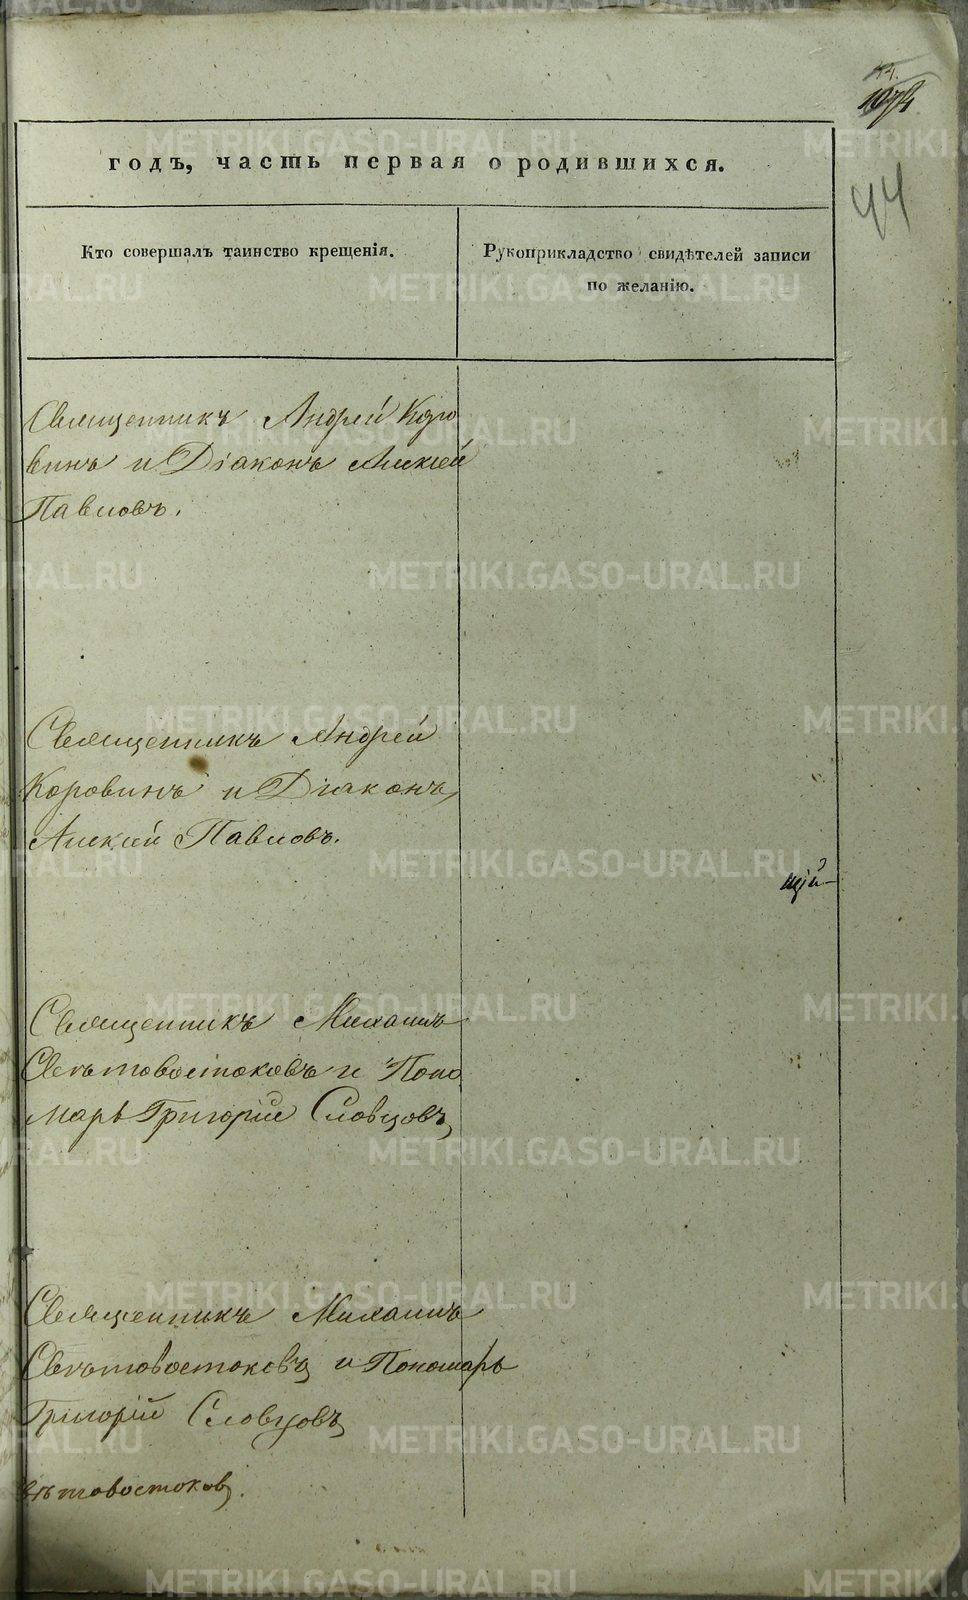 44
годъ, часть первая о родившихся.
Кто совершалъ таинство крещенія.
Рукоприкладство свидѣтелей записи
по желанію.
Священникъ Андрей Коро
винъ и Діаконъ Алексѣй
Павловъ.
Священникъ Андрей
Коровинъ и Діаконъ
Алексѣй Павловъ.
щій
Священникъ Михаилъ
Свѣтовостоковъ и Поно
марь Григорій Словцовъ
Священникъ Михаилъ
Свѣтовостоковъ и Пономарь
Григорій Словцовъ
вѣтовостоковъ.
METRIKI.GASO-URAL.RU